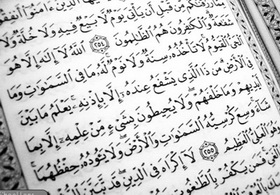 رَزَقْنَٰكُم مِّن قَبْلِ أَن يَأْتِيَ يَوْمٌ لَّا بَيْعٌ فِيهِ وَلَا خُلَّةٌ وَلَا
شَفَٰعَةٌ وَٱلْكَٰفِرُونَ هُمُ ٱلظَّٰلِمُونَ ٢٥٤ ٱللَّهُ لَآ إِلَٰهَ إِلَّا هُوَ
ٱلْحَىُّ ٱلْقَيُّومُ لَا تَأْخُذُهُۥ سِنَةٌ وَلَا نَوْمٌ لَّهُۥ مَا فِى ٱلسَّمَٰوَٰتِ وَمَا
فِى ٱلْأَرْضِ مَن ذَا ٱلَّذِى يَشْفَعُ عِندَهُۥٓ إِلَّا بِإِذْنِهِۦ يَعْلَمُ مَا بَيْنَ
أَيْدِيهِمْ وَمَا خَلْفَهُمْ وَلَا يُحِيطُونَ بِشَىْءٍ مِّنْ عِلْمِهِۦٓ إِلَّا بِمَا
شَآءَ وَسِعَ كُرْسِيُّهُ ٱلسَّمَٰوَٰتِ وَٱلْأَرْضَ وَلَا يَـُٔودُهُۥ حِفْظُهُمَا
ٱلْعَلِىُّ ٱلْعَظِيمُ ٢٥٥ لَآ إِكْرَاهَ فِى ٱلدِّينِ قَد تَّبَيَّنَ
فَمَن يَكْفُرْ